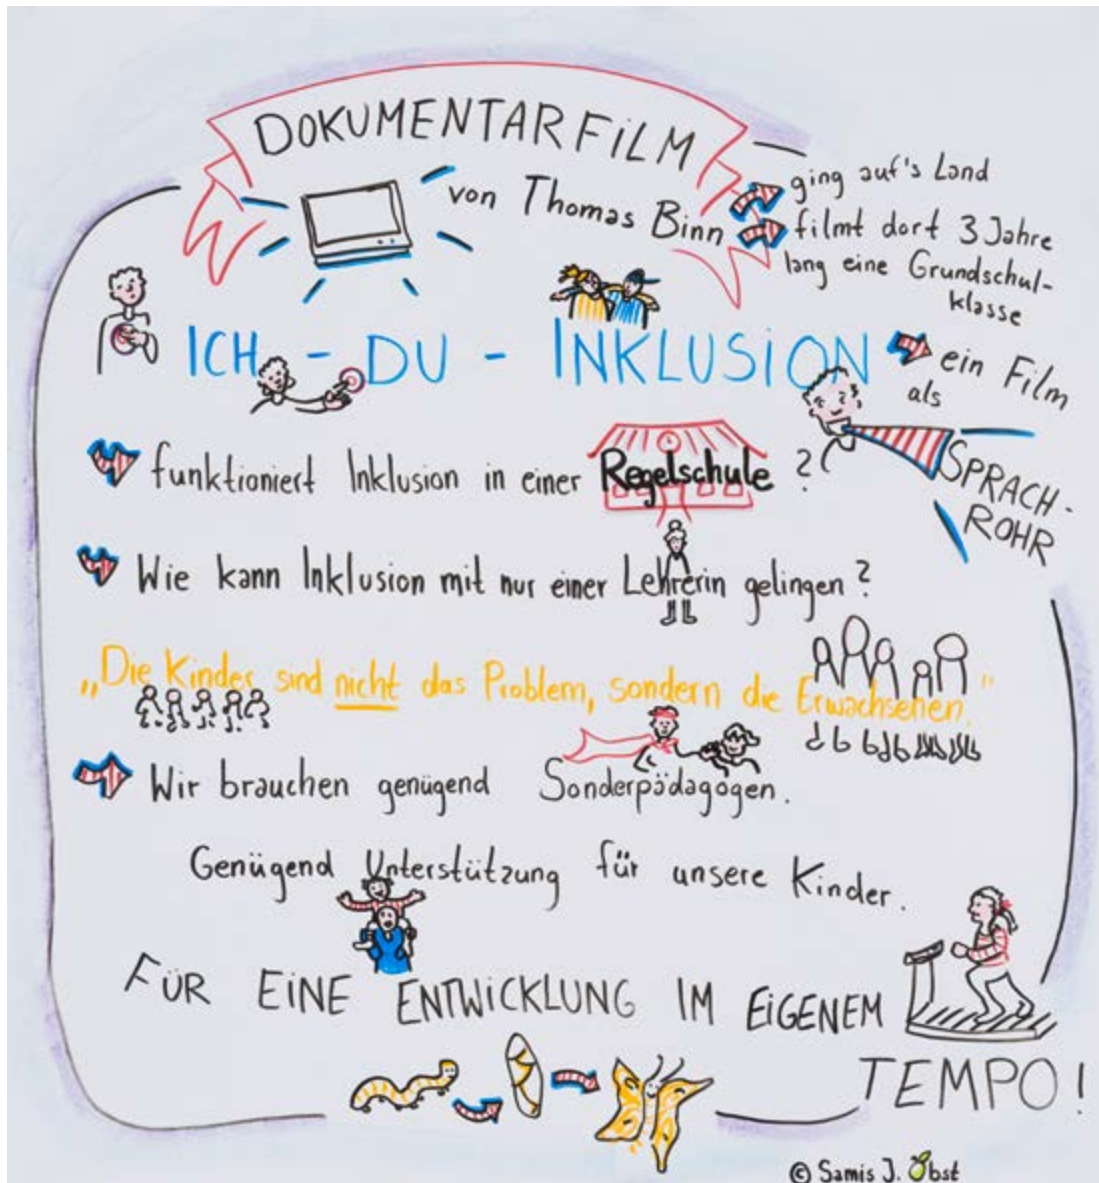 DOKUMENTARFILM
von Thomas Binn
ging auf's Land
filmt dort 3 Jahre
lang eine Grundschul-
klasse
ICH - DU - INKLUSION
ein Film
als
SPRACH-
ROHR
funktioniert Inklusion in einer Regelschule ?
Wie kann Inklusion mit nur einer Lehrerin gelingen ?
„Die Kinder sind nicht das Problem, sondern die Erwachsenen."
Wir brauchen genügend Sonderpädagogen.
Genügend Unterstützung für unsere Kinder.
FÜR EINE ENTWICKLUNG IM EIGENEM
TEMPO!
© Samis J. Obst